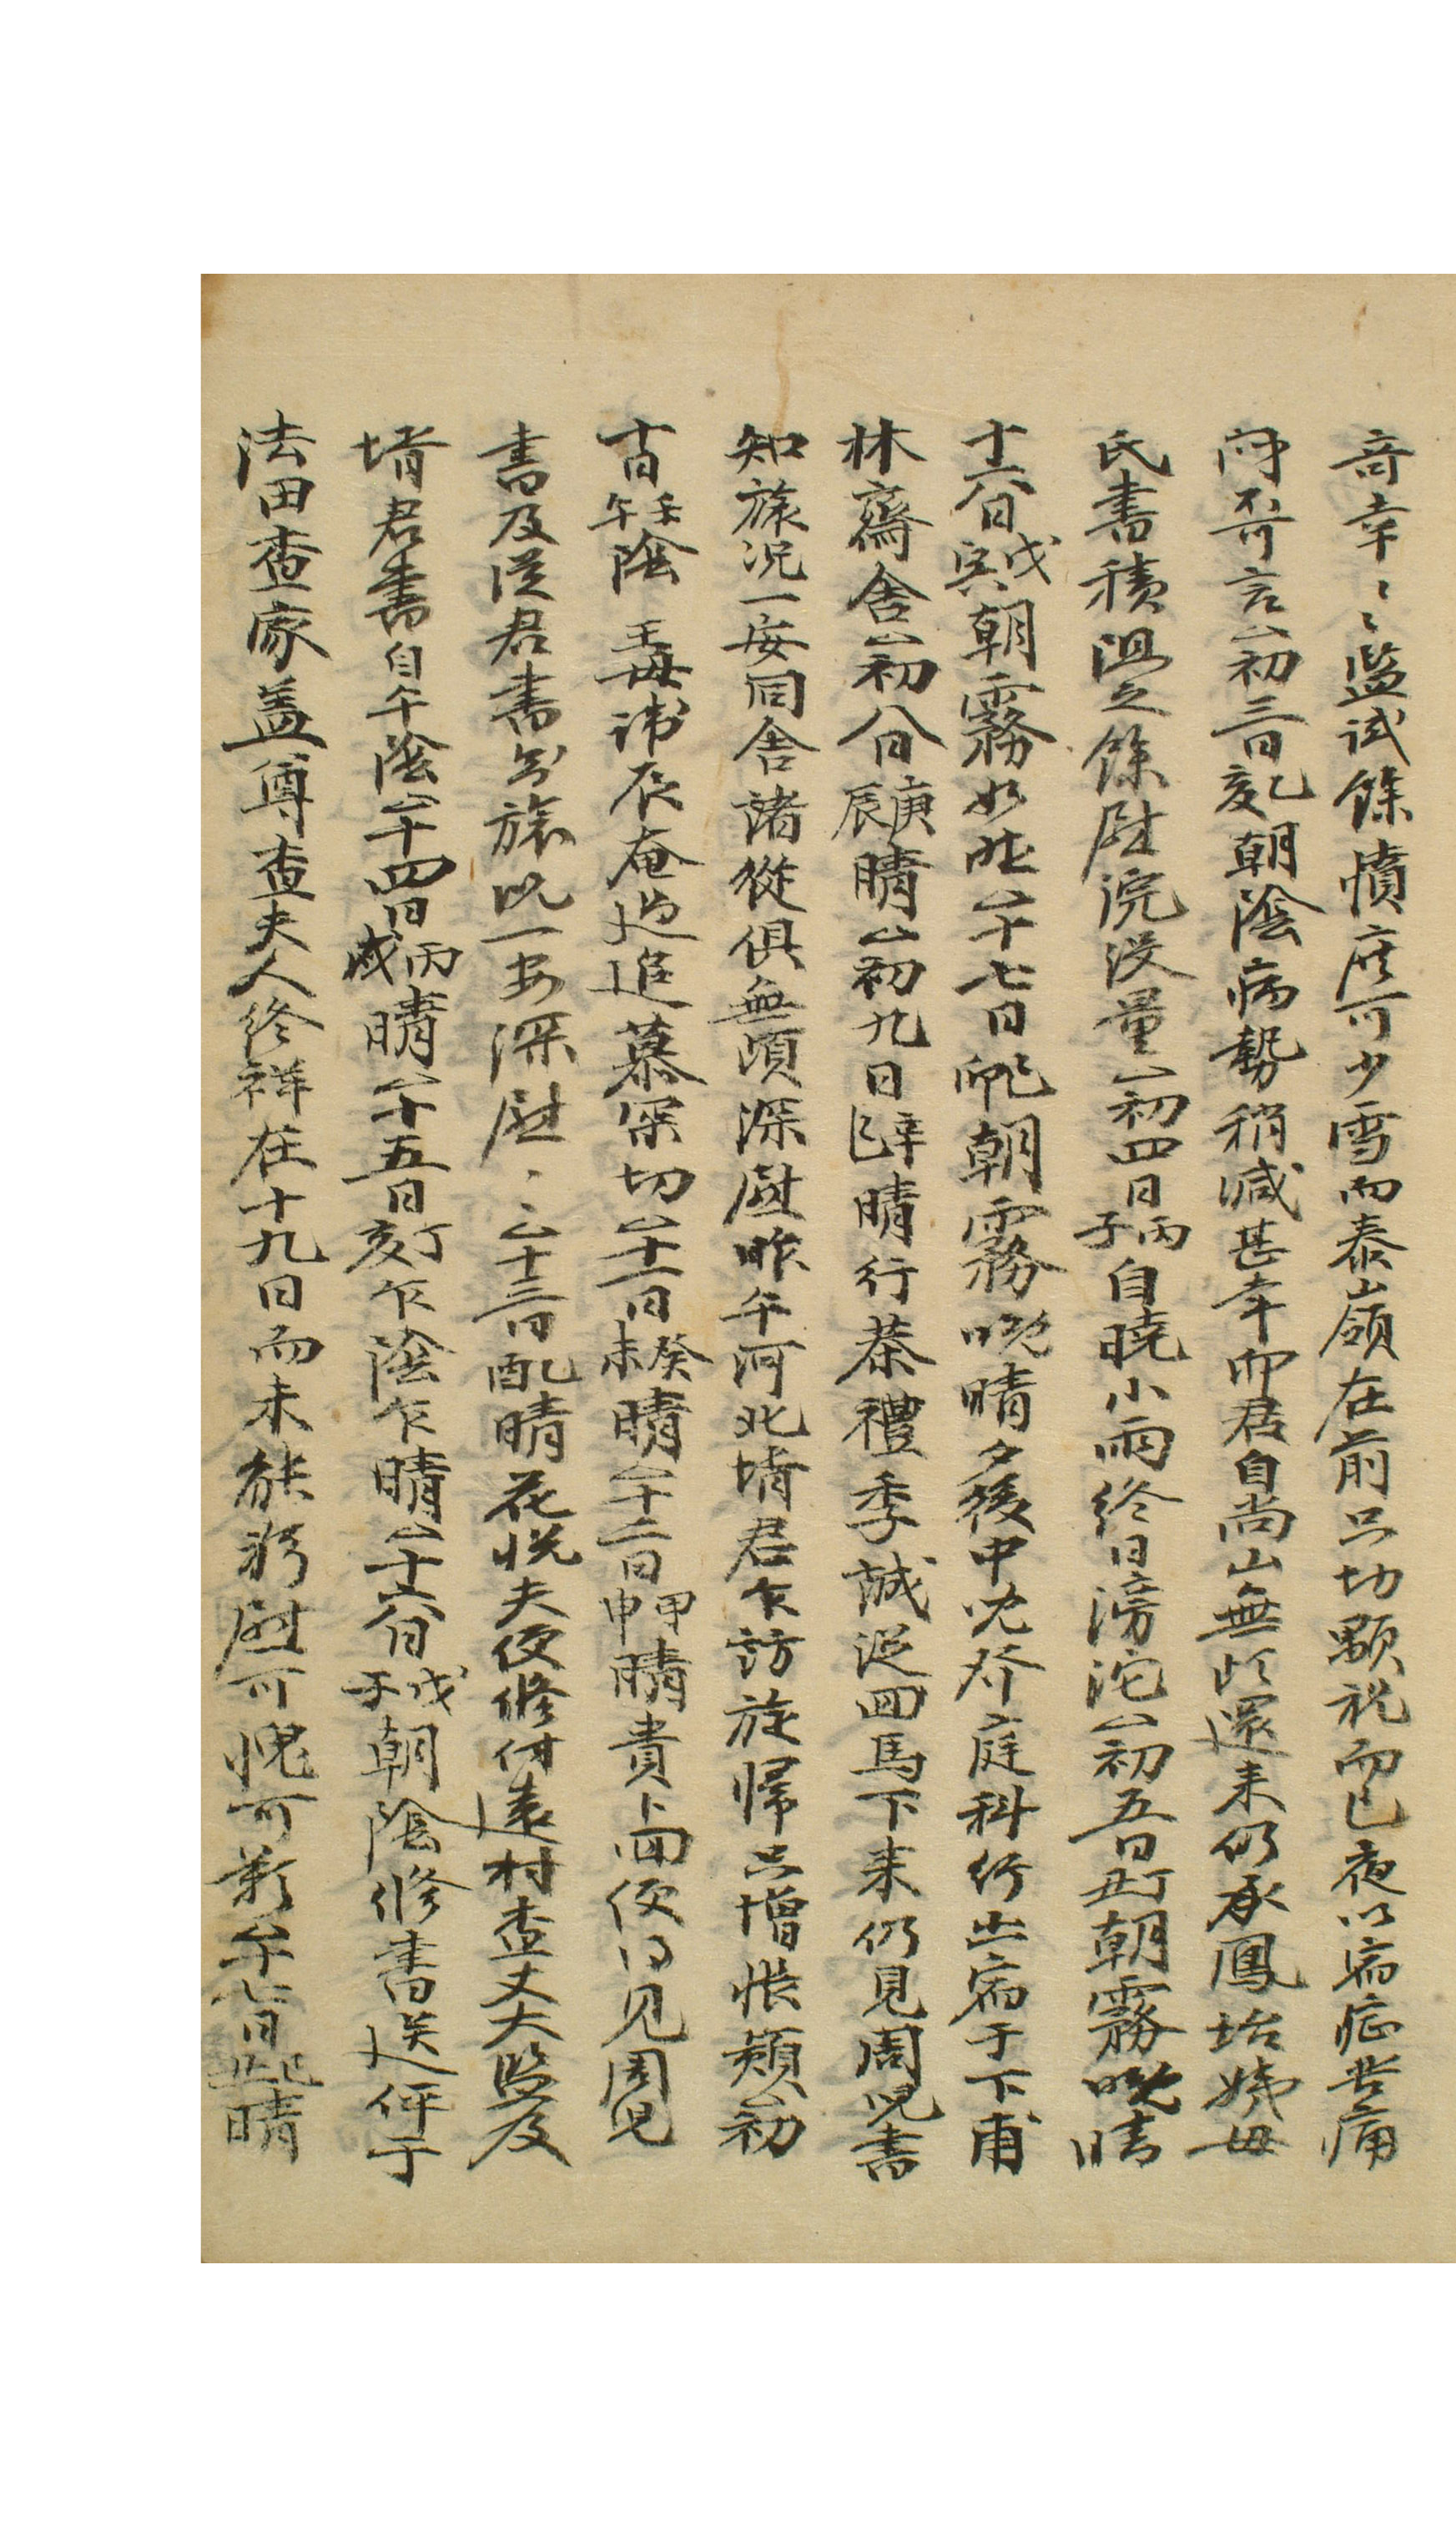 奇幸〻〻監試餘憤庶可少雪而泰嶺在前只切顒祝而已夜以宿症苦痛
可言△初三日乙亥朝陰病勢稍減甚幸而君自尚山無頉還來仍承鳳坮姨母
氏書積阻之餘慰浣沒量△初四日丙子自曉小雨終日滂沱△初五日丁丑朝霧晩晴
△初六日戊寅朝霧如昨△初七日己卯朝霧晩晴夕後中允發庭科行出宿于下甫
林齋舍△初八日庚辰晴△初九日辛巳晴行茶禮季誠從回馬下來仍見周兒書
知旅況一安同舍諸從俱無頉深慰昨午河北壻君乍訪旋歸只增悵類△初
十日壬午陰 王母諱辰奄過追慕深切△十一日癸未晴△十二日甲申晴貴卜回便得見周兒
書及從君書知旅況一安深慰〻〻△十三日乙酉晴花悅夫便修付遠村査丈大監及
壻君書自午陰△十四日丙戌晴△十五日丁亥乍陰乍晴△十六日戊子朝陰修書送伻于
法田査家盖尊査夫人終祥在十九日而未能躬慰可愧可歎△十七日己丑晴